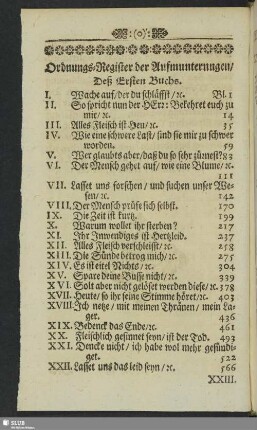 (o)
Ordnungs-Register der Aufmunterungen/
Deß Ersten Buchs.
I. Wache auf/ der du schläffst/ ꝛc. Bl. 1
II. So spricht nun der HErr: Bekehret euch zu
mir/ ꝛc. 14
III. Alles Fleisch ist Heu/ ꝛc. 35
IV. Wie eine schwere Last/ sind sie mir zu schwer
worden. 59
V. Wer glaubts aber/ daß du so sehr zürnest? 83
VI. Der Mensch gehet auf/ wie eine Blume/ ꝛc.
111
VII. Lasset uns forschen/ und suchen unser We-
sen/ ꝛc. 142
VIII. Der Mensch prüfe sich selbst. 170
IX. Die Zeit ist kurtz. 199
X. Warum wollet ihr sterben? 217
XI. Ihr Inwendiges ist Hertzleid. 237
XII. Alles Fleisch verschleisst/ ꝛc. 258
XIII. Die Sünde betrog mich/ ꝛc. 275
XIV. Es ist eitel Nichts/ ꝛc. 304
XV. Spare deine Busse nicht/ ꝛc. 339
XVI. Solt aber nicht gelöset werden diese/ ꝛc. 378
XVII. Heute/ so ihr seine Stimme höret/ ꝛc. 403
XVIII. Ich netze/ mit meinen Thränen/ mein La-
ger. 436
XIX. Bedenck das Ende/ ꝛc. 461
XX. Fleischlich gesinnet seyn/ ist der Tod. 493
XXI. Dencke nicht/ ich habe wol mehr gesündi-
get. 522
XXII. Lasset uns das leid seyn/ ꝛc. 566
XXIII.
SLUB